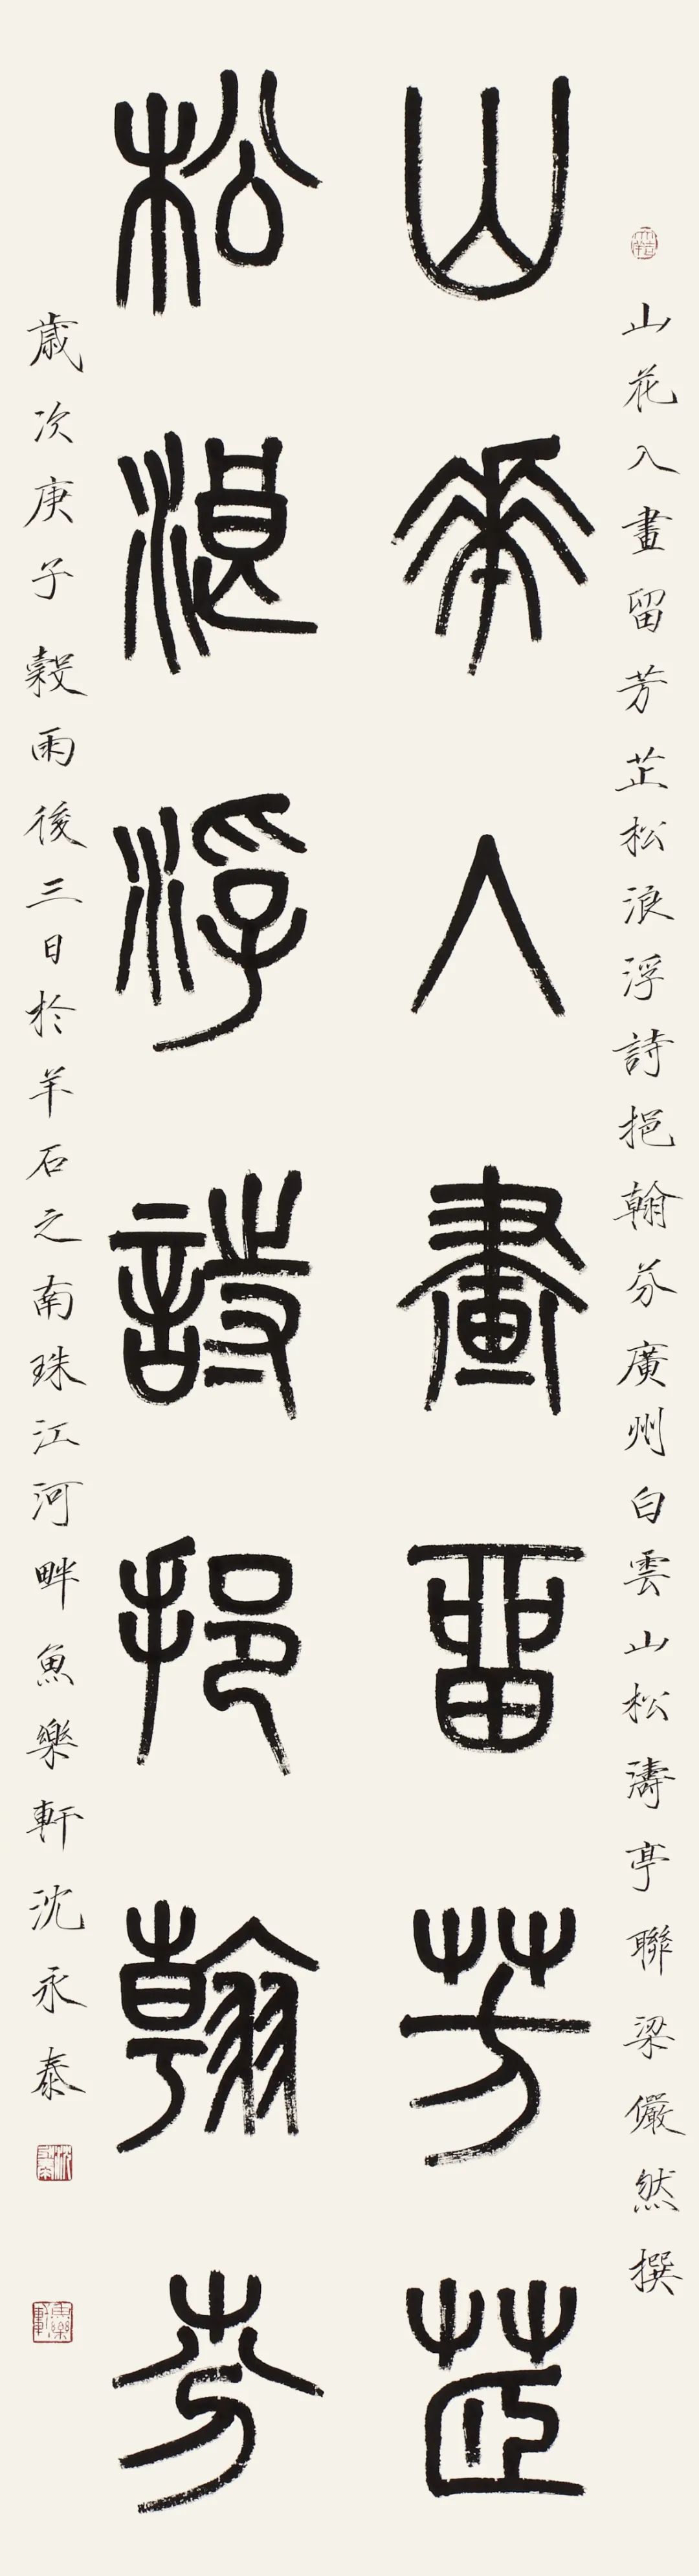 山花入畫留芳芷松浪浮詩挹翰芬廣州白雲山松濤亭聯梁儼然撰
山華入畫留芳芷
松浪浮詩挹翰芬
歲次庚子穀雨後三日於羊石之南珠江河畔魚樂軒沈永泰